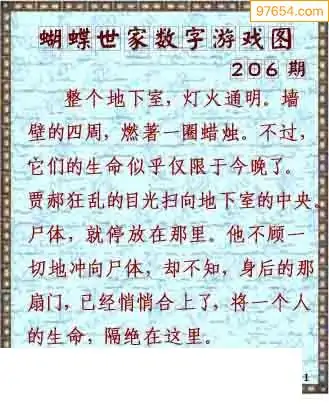 97654.com
蝴蝶世家数字游戏图
206 期
整个地下室，灯火通明。墙
壁的四周，燃著一圈蜡烛。不过，
它们的生命似乎仅限于今晚了。
贾郝狂乱的目光扫向地下室的中央。
尸体，就停放在那里。他不顾一
切地冲向尸体，却不知，身后的那
扇门，已经悄悄合上了，将一个人
的生命，隔绝在这里。